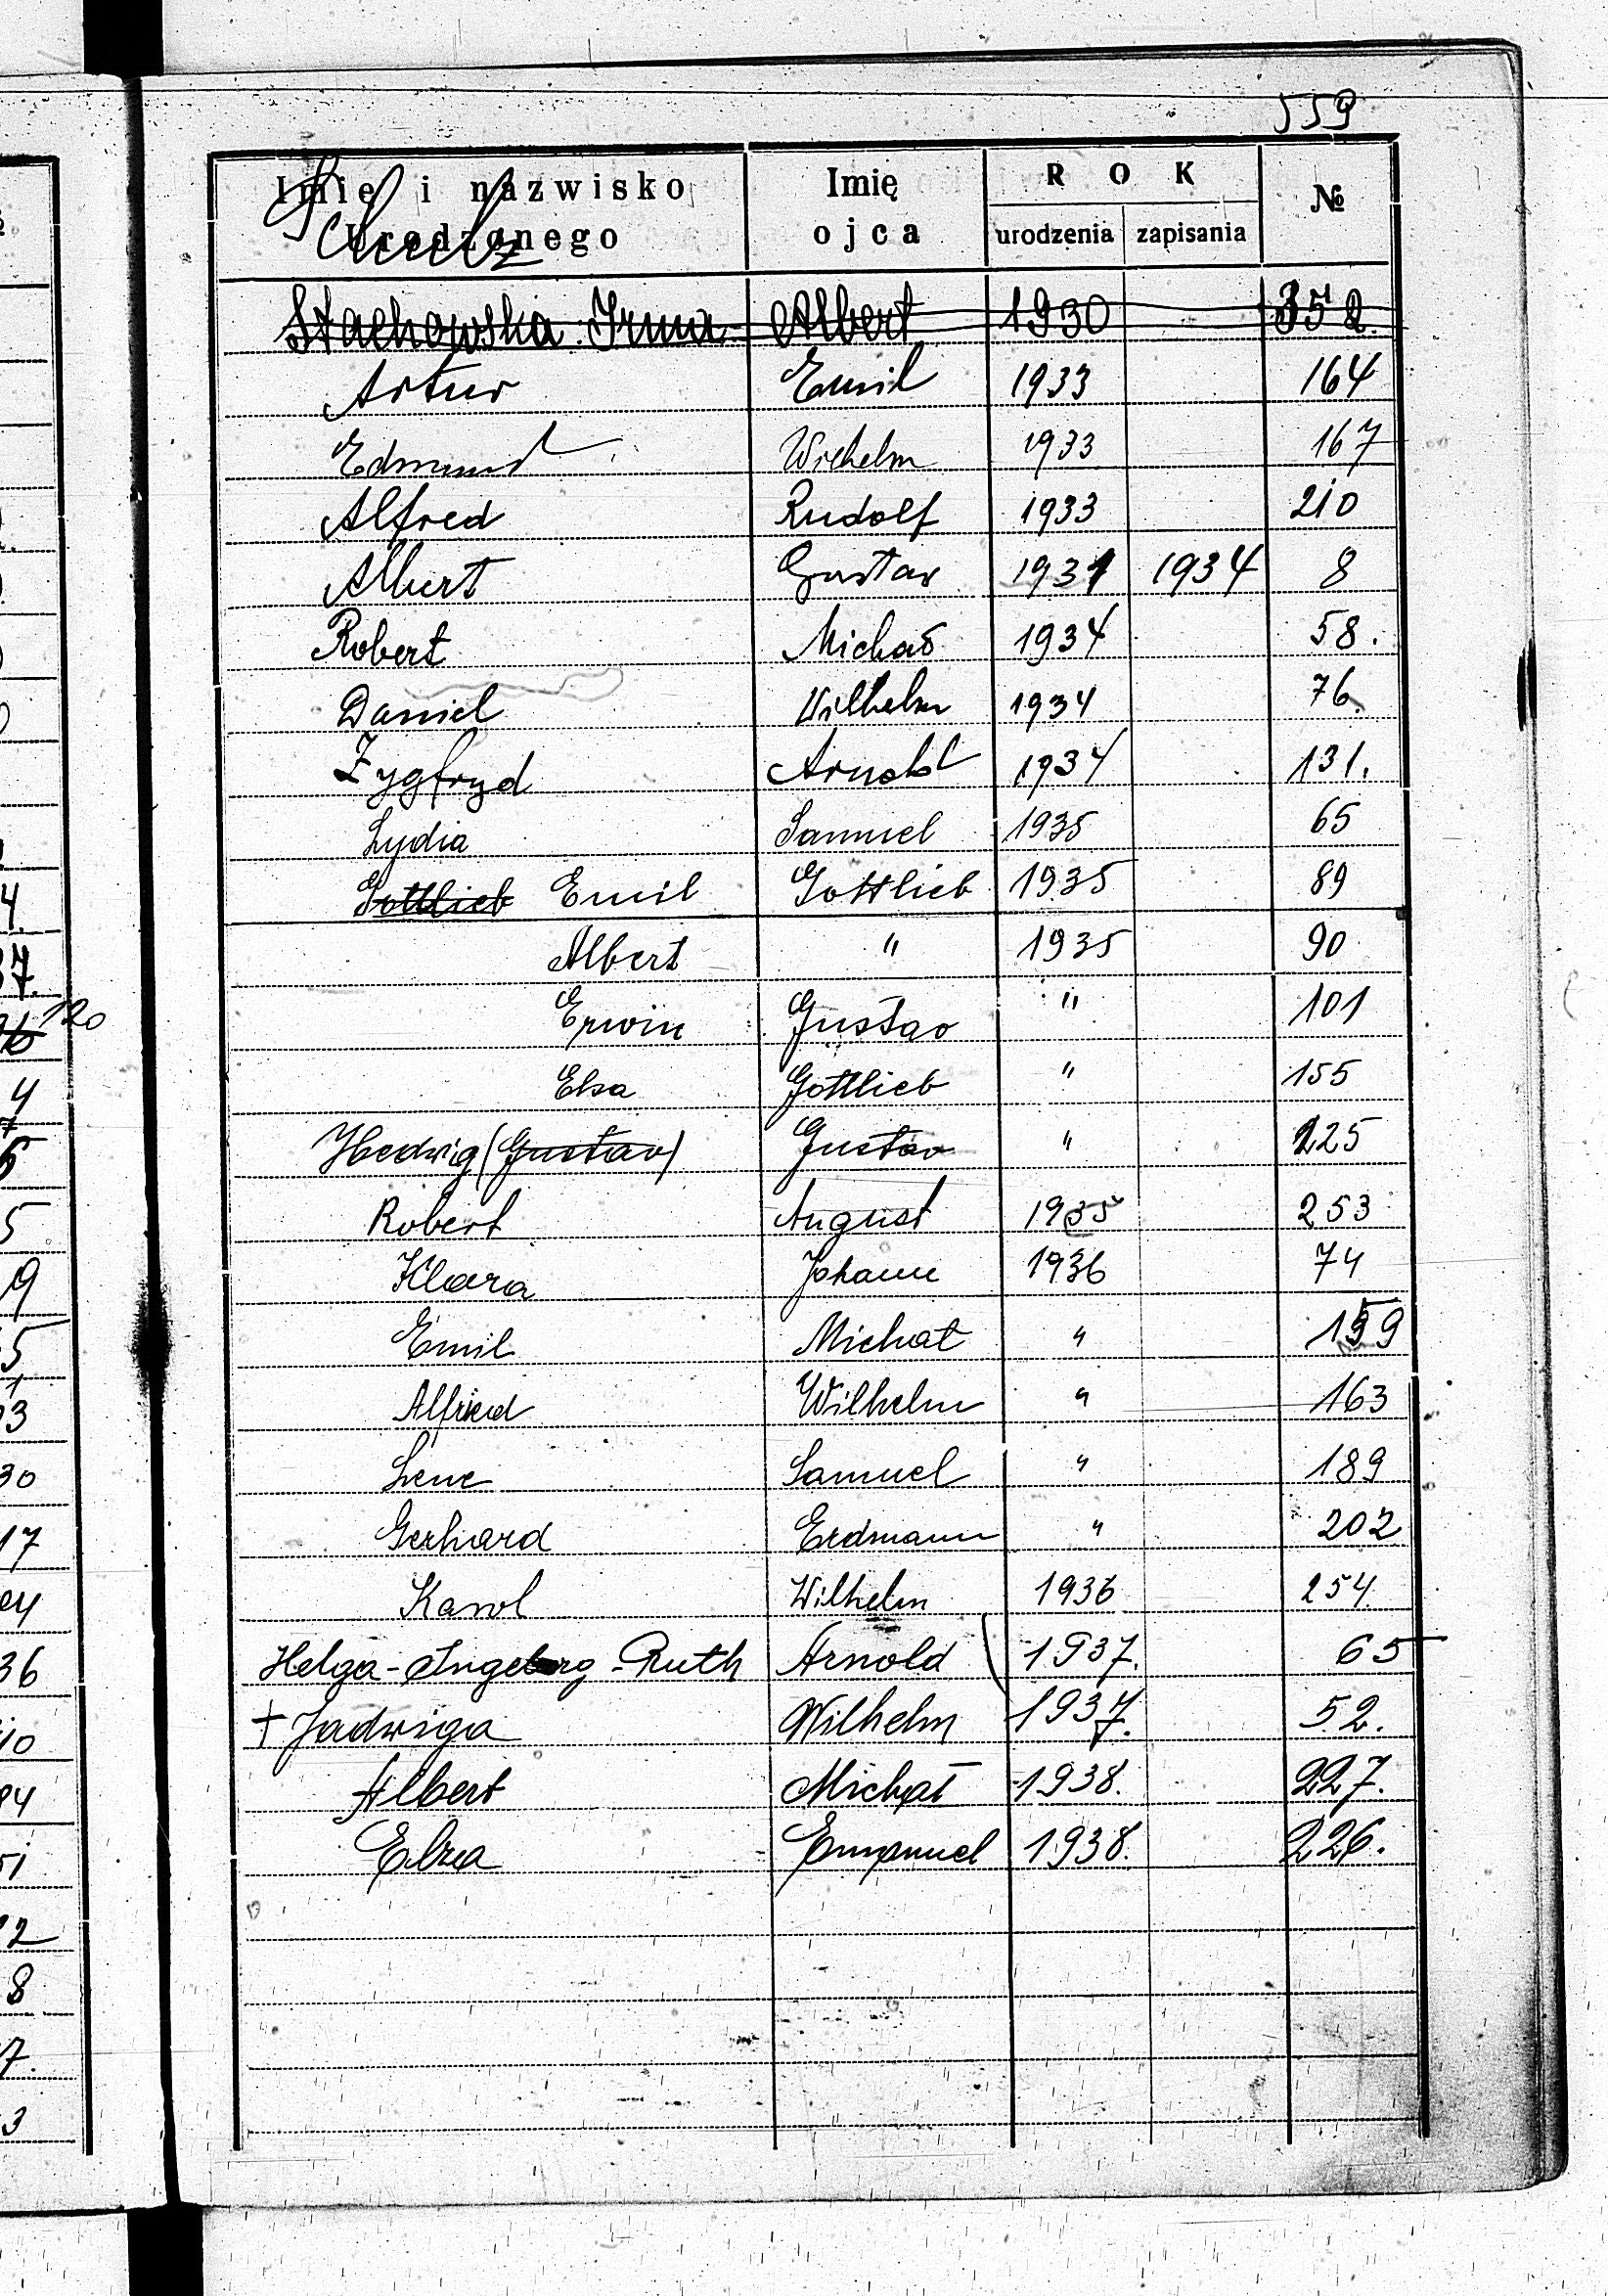 559
Imię i nazwisko Urodzonego Imię ojca ROK urodzenia zapisania №
Schulz
Stachowska Irma Albert 1930 352.
Artur Emil 1933 164
Edmund Wilhelm 1933 167
Alfred Rudolf 1933 210
Albert Gustav 1931 1934 8
Robert Michał 1934 58.
Daniel Wilhelm 1934 76.
Zygfryd Arnold 1934 131.
Lydia Samuel 1935 65
Gottlieb Emil Gottlieb 1935 89
Albert " 1935 90
Erwin Gustav " 101
Elsa Gottlieb " 155
Hedwig (Gustav) Gustav " 225
Robert August 1935 253
Klara Johann 1936 74
Emil Michał " 159
Alfred Wilhelm " 163
Lene Samuel " 189
Gerhard Erdmann " 202
Karol Wilhelm 1936 254
Helga-Ingeborg-Ruth Arnold 1937. 65
+ Jadwiga Wilhelm 1937. 52.
Albert Michał 1938. 227.
Elza Emanuel 1938. 226.